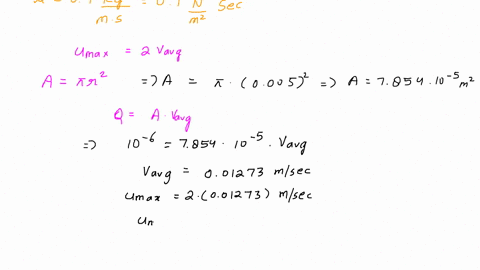 = 0.1 N/m² Sec
m.s
umax = 2 Vavg
A = πr² => A = π · (0.005)² => A = 7.854 · 10⁻⁵ m²
Q = A · Vavg
=> 10⁻⁶ = 7.854 · 10⁻⁵ · Vavg
Vavg = 0.01273 m/sec
umax = 2 · (0.01273) m/sec
um